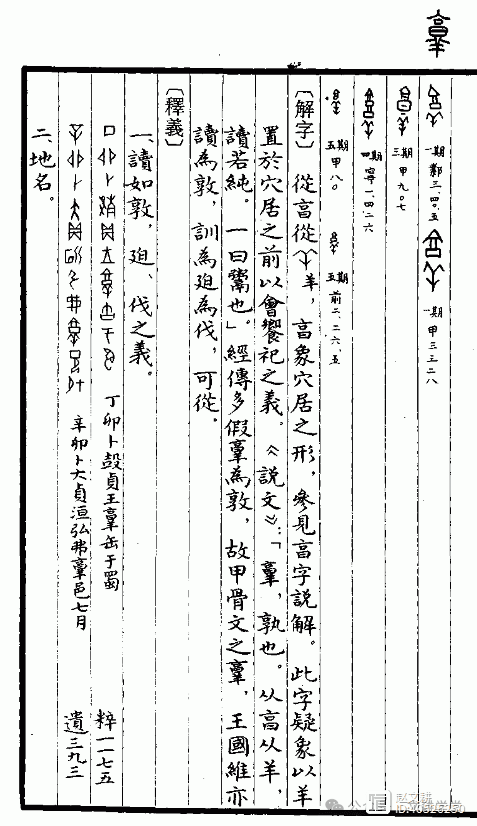 𦎫
一期 鄴三、四〇、五 一期 甲三三二八
三期 甲九〇七
四期 寧一、四二六
五期 甲八〇 五期 前二、二六、五
〔解字〕從亯從羊,亯象穴居之形,參見亯字說解。此字疑象以羊
置於穴居之前以會饗祀之義。《說文》:「𦎫,孰也。从亯从羊,
讀若純。一曰鬻也」。經傳多假𦎫為敦,故甲骨文之𦎫,王國維亦
讀為敦,訓為迫為伐,可從。
〔釋義〕
一、讀如敦,迫、伐之義。
丁卯卜㱿貞王𦎫缶于蜀 粹一一七五
辛卯卜大貞洹弘弗𦎫邑七月 遺三九三
二、地名。